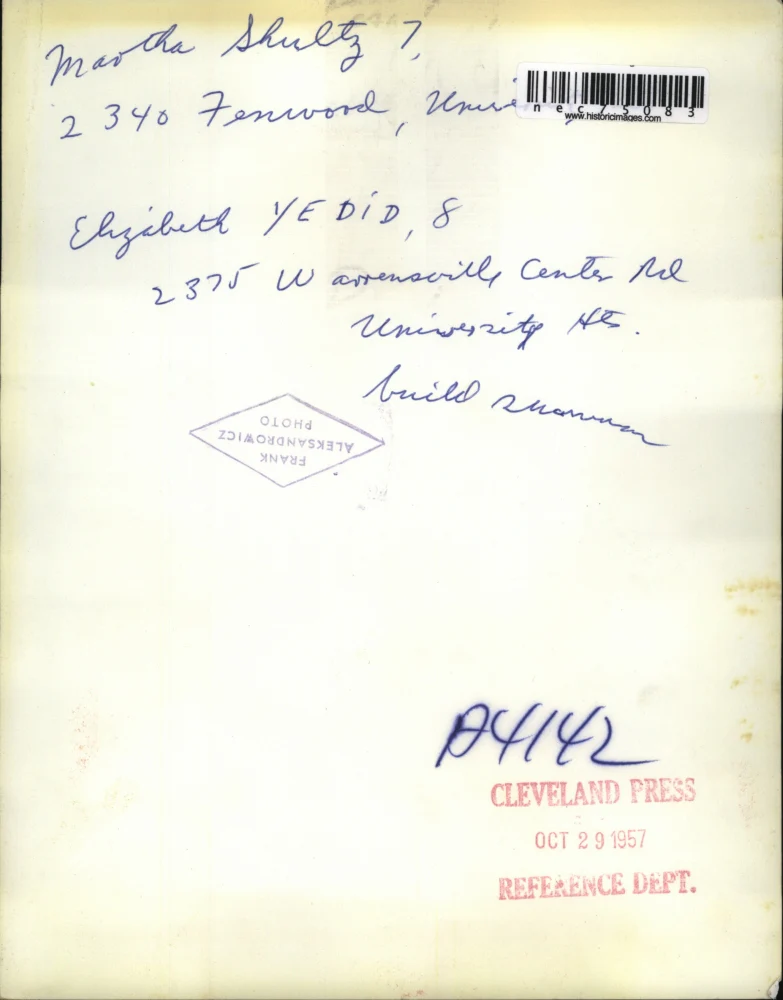 Martha Shultz 7,
2340 Fenwood, Univ
nec75083
www.historicimages.com
Elizabeth YEDID, 8
2375 Warrensville Center Rd
University Hts.
build snowman
FRANK
ALEKSANDROWICZ
PHOTO
A4142
CLEVELAND PRESS
OCT 29 1957
REFERENCE DEPT.